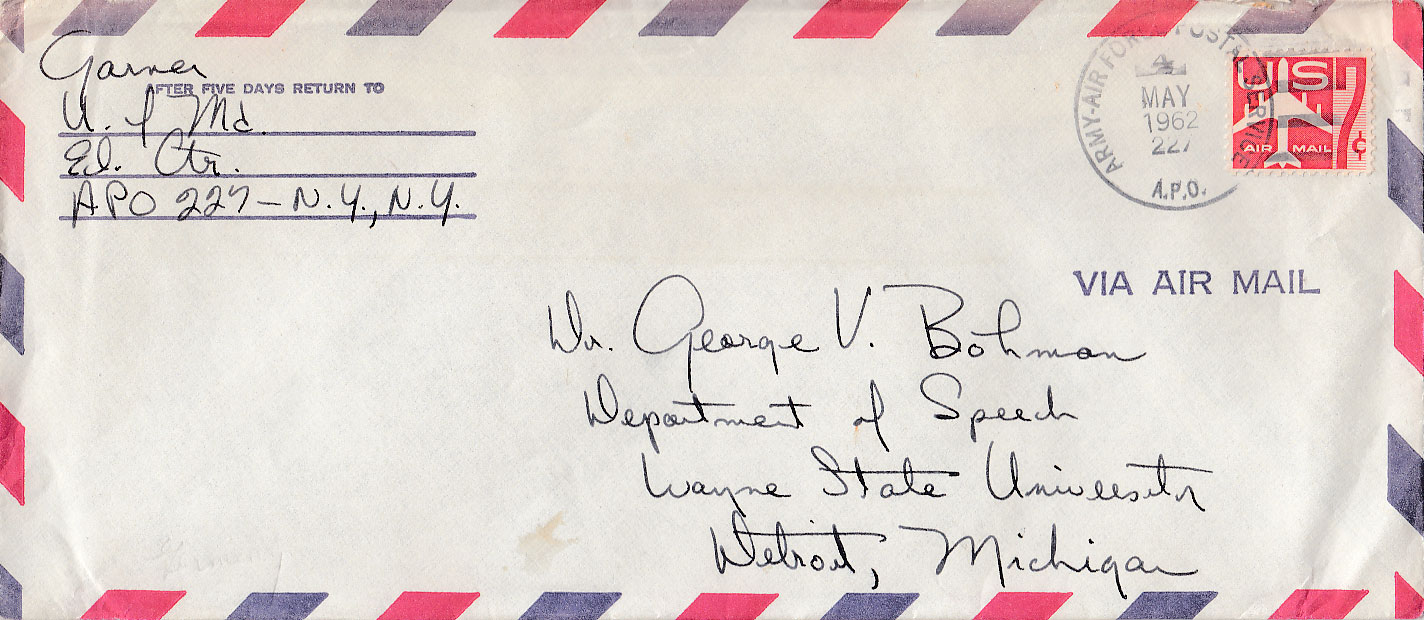 Garner
AFTER FIVE DAYS RETURN TO
U. of Md.
Ed. Ctr.
APO 227 - N.Y., N.Y.
ARMY-AIR FORCE POSTAL SERVICE
4
MAY
1962
227
A.P.O.
US 7¢
AIR MAIL
VIA AIR MAIL
Dr. George V. Bohman
Department of Speech
Wayne State University
Detroit, Michigan